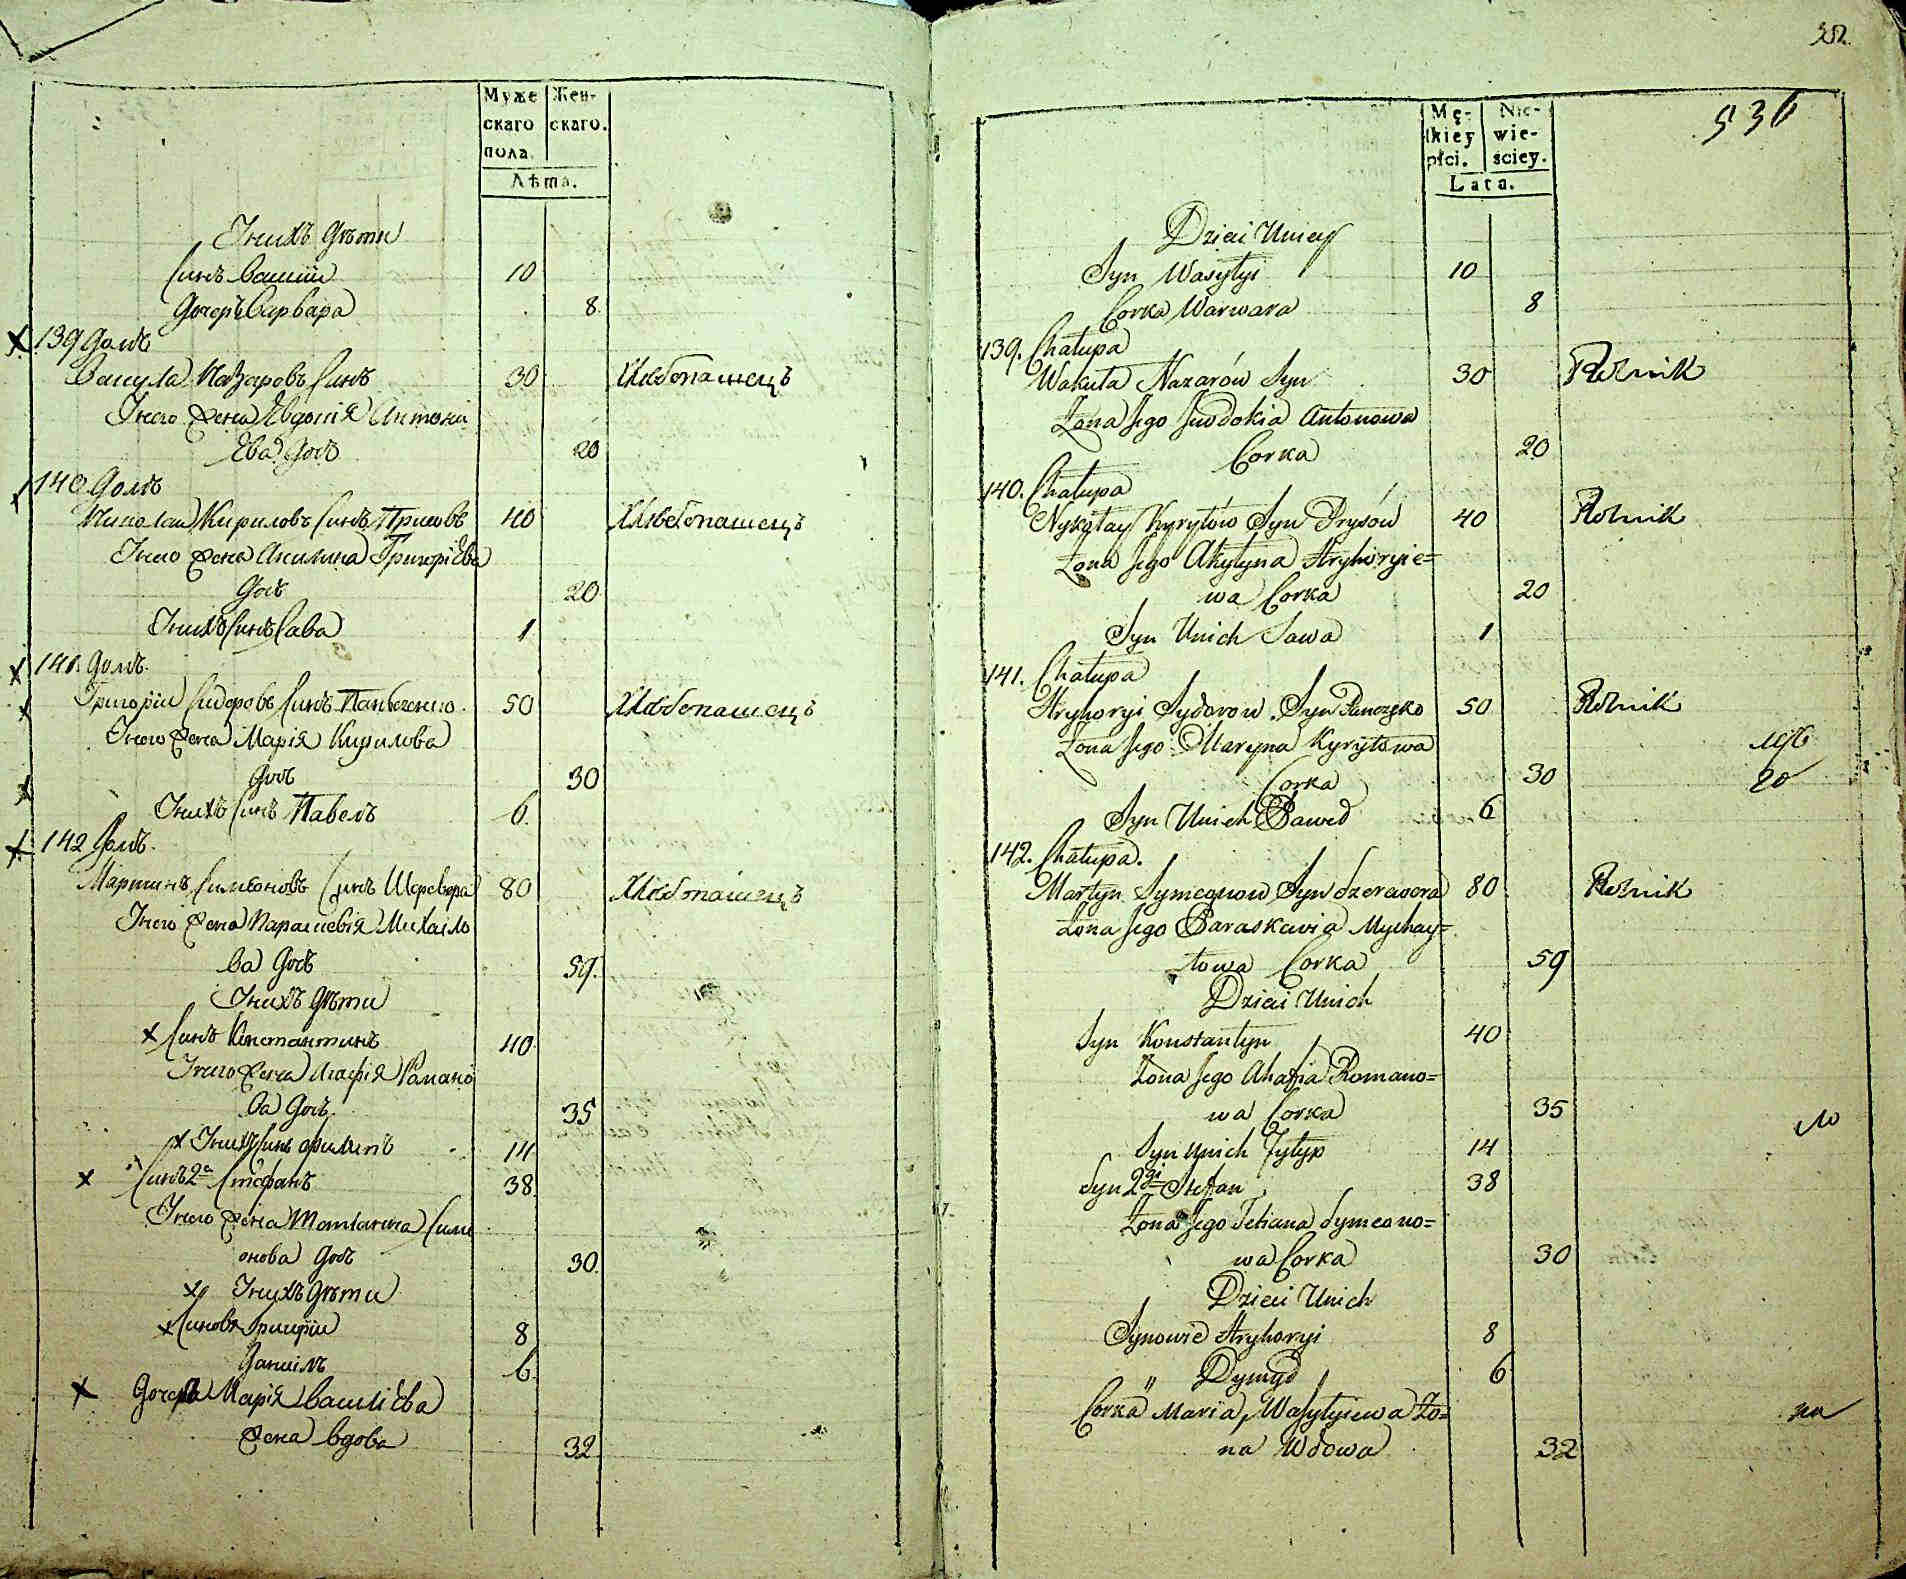 Муже
скаго
пола.
Жен-
скаго.
Лѣта.
У нихъ дѣти
Синъ Василій 10
Дочерь Варвара 8
139 Домъ
Вакула Назаровъ Синъ 30 Хлебопашецъ
У него Жена Евдокія Антоні
Ева Доч 20
140 Домъ
Николай Кириловъ Синъ Присовъ 40 Хлебопашецъ
У него Жена Акилина Григоріева
Доч 20
У нихъ Синъ Сава 1
141. Домъ.
Григорій Сидоровъ Синъ 50 Хлебопашецъ
У него Жена Марія Кирилова
Доч 30
У нихъ Синъ Павелъ 6.
142 Домъ.
Мартинъ Симеоновъ Синъ Шеревера 80 Хлебопашецъ
У него Жена Параскевія Михайло
ва Доч 59.
У нихъ дѣти
Синъ Константинъ 40
У него Жена Агафія Романо
ва Доч. 35
У нихъ Синъ Филипъ 14
Синъ 2й Стефанъ 38
У него Жена Татіанна Симе
онова Доч 30.
У нихъ дѣти
Синовя Григорій 8
Даниілъ 6
Дочера Марія Василіева
Жена Вдова 32
352.
536
Mę-
skiey
płci.
Nie-
wie-
sciey.
Lata.
Dzieci Unich
Syn Wasylyi 10
Corka Warwara 8
139. Chałupa
Wakuła Nazarów Syn 30 Rolnik
Żona Jego Jewdokia Antonowa
Corka 20
140. Chałupa
Nykołay Kyryłów Syn Prysów 40 Rolnik
Żona Jego Akylyna Hryhoryie=
wa Corka 20
Syn Unich Sawa 1
141. Chałupa
Hryhoryi Sydorow Syn 50 Rolnik
Żona Jego Maryna Kyryłowa
Corka 30
20
Syn Unich Paweł 6
142. Chałupa.
Martyn Symeonow Syn Szerewera 80 Rolnik
Żona Jego Paraskewia Mychay=
łowa Corka 59
Dzieci Unich
Syn Konstantyn 40
Żona Jego Ahafia Romano=
wa Corka 35
Syn Unich Fylyp 14
Syn 2gi Stefan 38
Żona Jego Tetiana Symeono=
wa Corka 30
Dzieci Unich
Synowie Hryhoryi 8
" Dymyd 6
Corka Maria, Wasylyiewa Żo=
na Wdowa 32